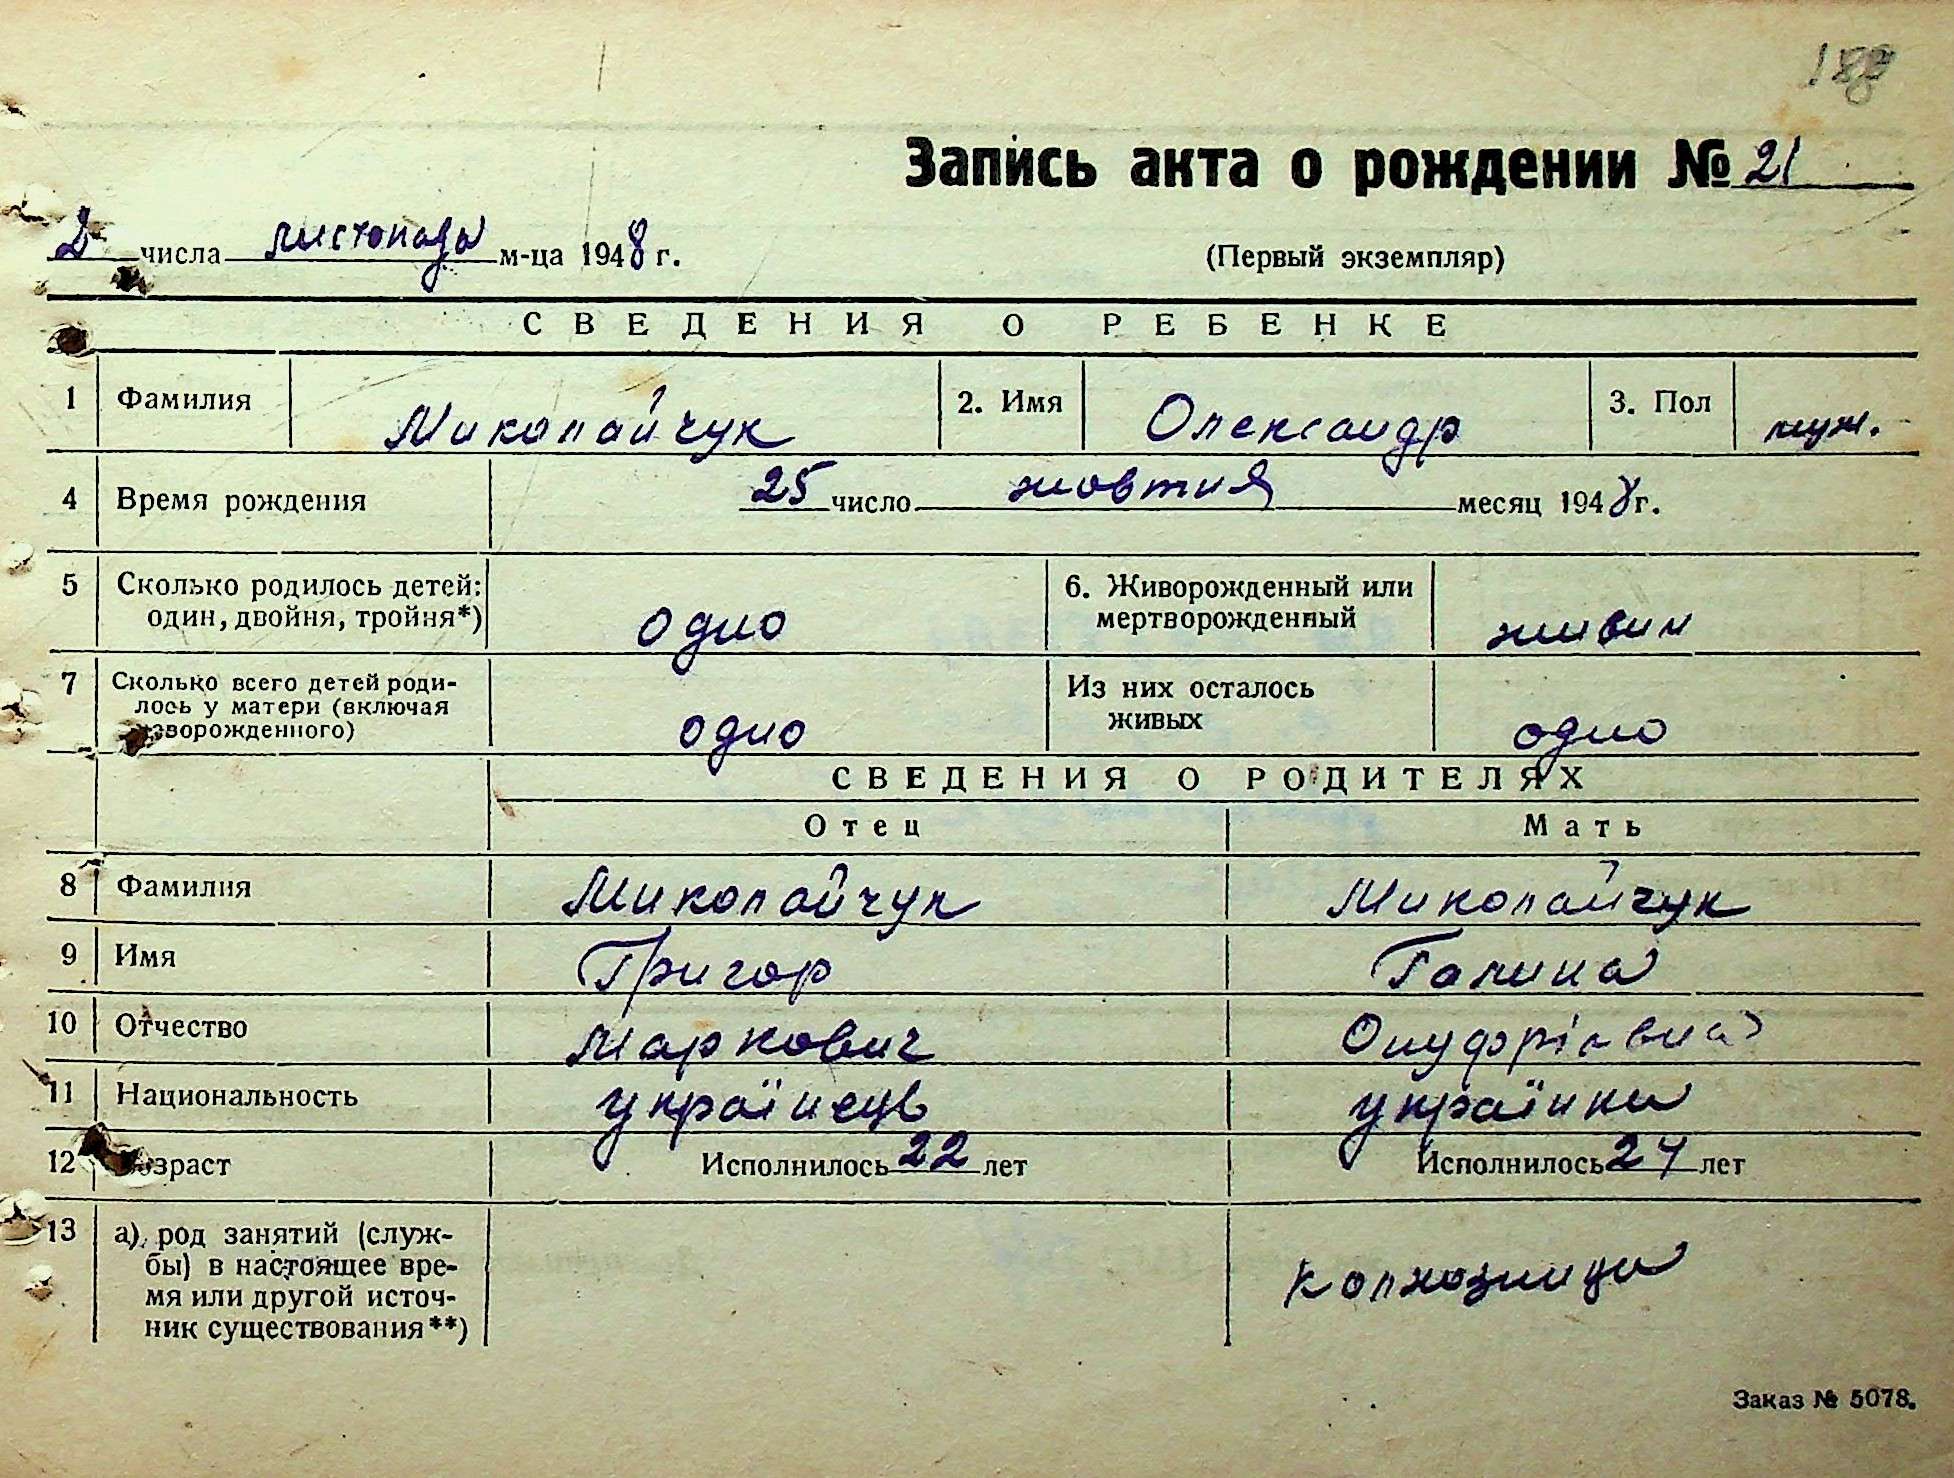 188
Запись акта о рождении № 21
2 числа листопада м-ца 1948 г.
(Первый экземпляр)
СВЕДЕНИЯ О РЕБЕНКЕ
1 Фамилия Миколайчук 2. Имя Олександр 3. Пол муж.
4 Время рождения 25 число жовтня месяц 1948 г.
5 Сколько родилось детей: 6. Живорожденный или
один, двойня, тройня*) одно мертворожденный живим
7 Сколько всего детей роди- Из них осталось
лось у матери (включая живых
новорожденного) одно одно
СВЕДЕНИЯ О РОДИТЕЛЯХ
Отец Мать
8 Фамилия Миколайчук Миколайчук
9 Имя Григор Галина
10 Отчество Маркович Онуфріевна
11 Национальность українець українка
12 Возраст Исполнилось 22 лет Исполнилось 24 лет
13 а) род занятий (служ-
бы) в настоящее вре-
мя или другой источ- колхозница
ник существования**)
Заказ № 5078.